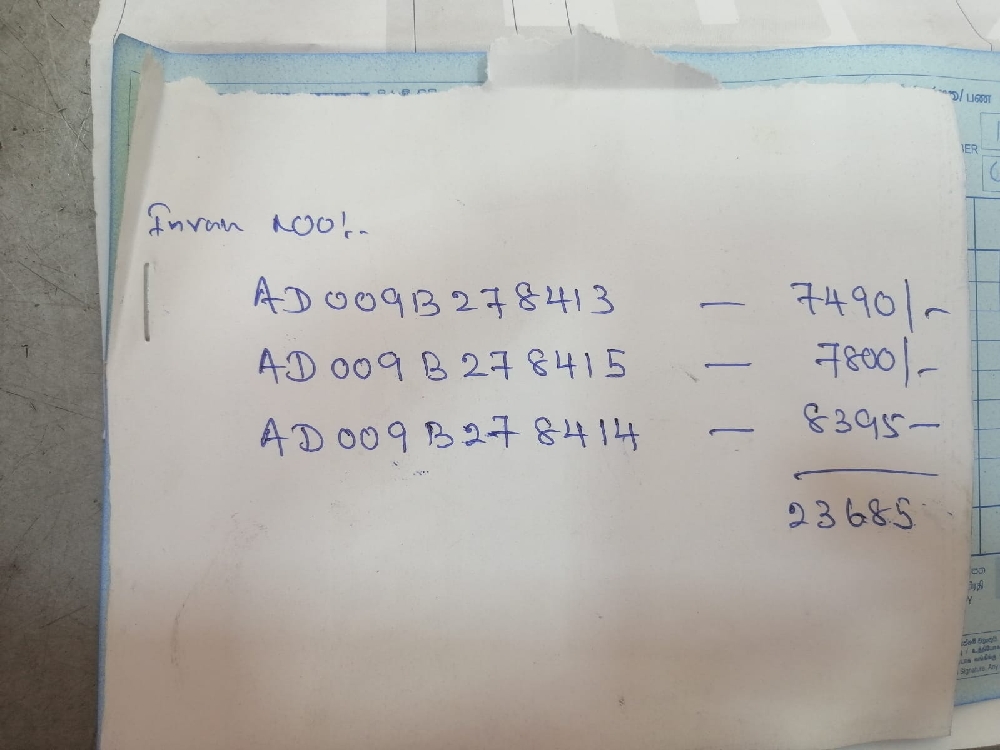 AD009B278413 — 7490/-
AD009B278415 — 7800/-
AD009B278414 — 8395—
23685
பண